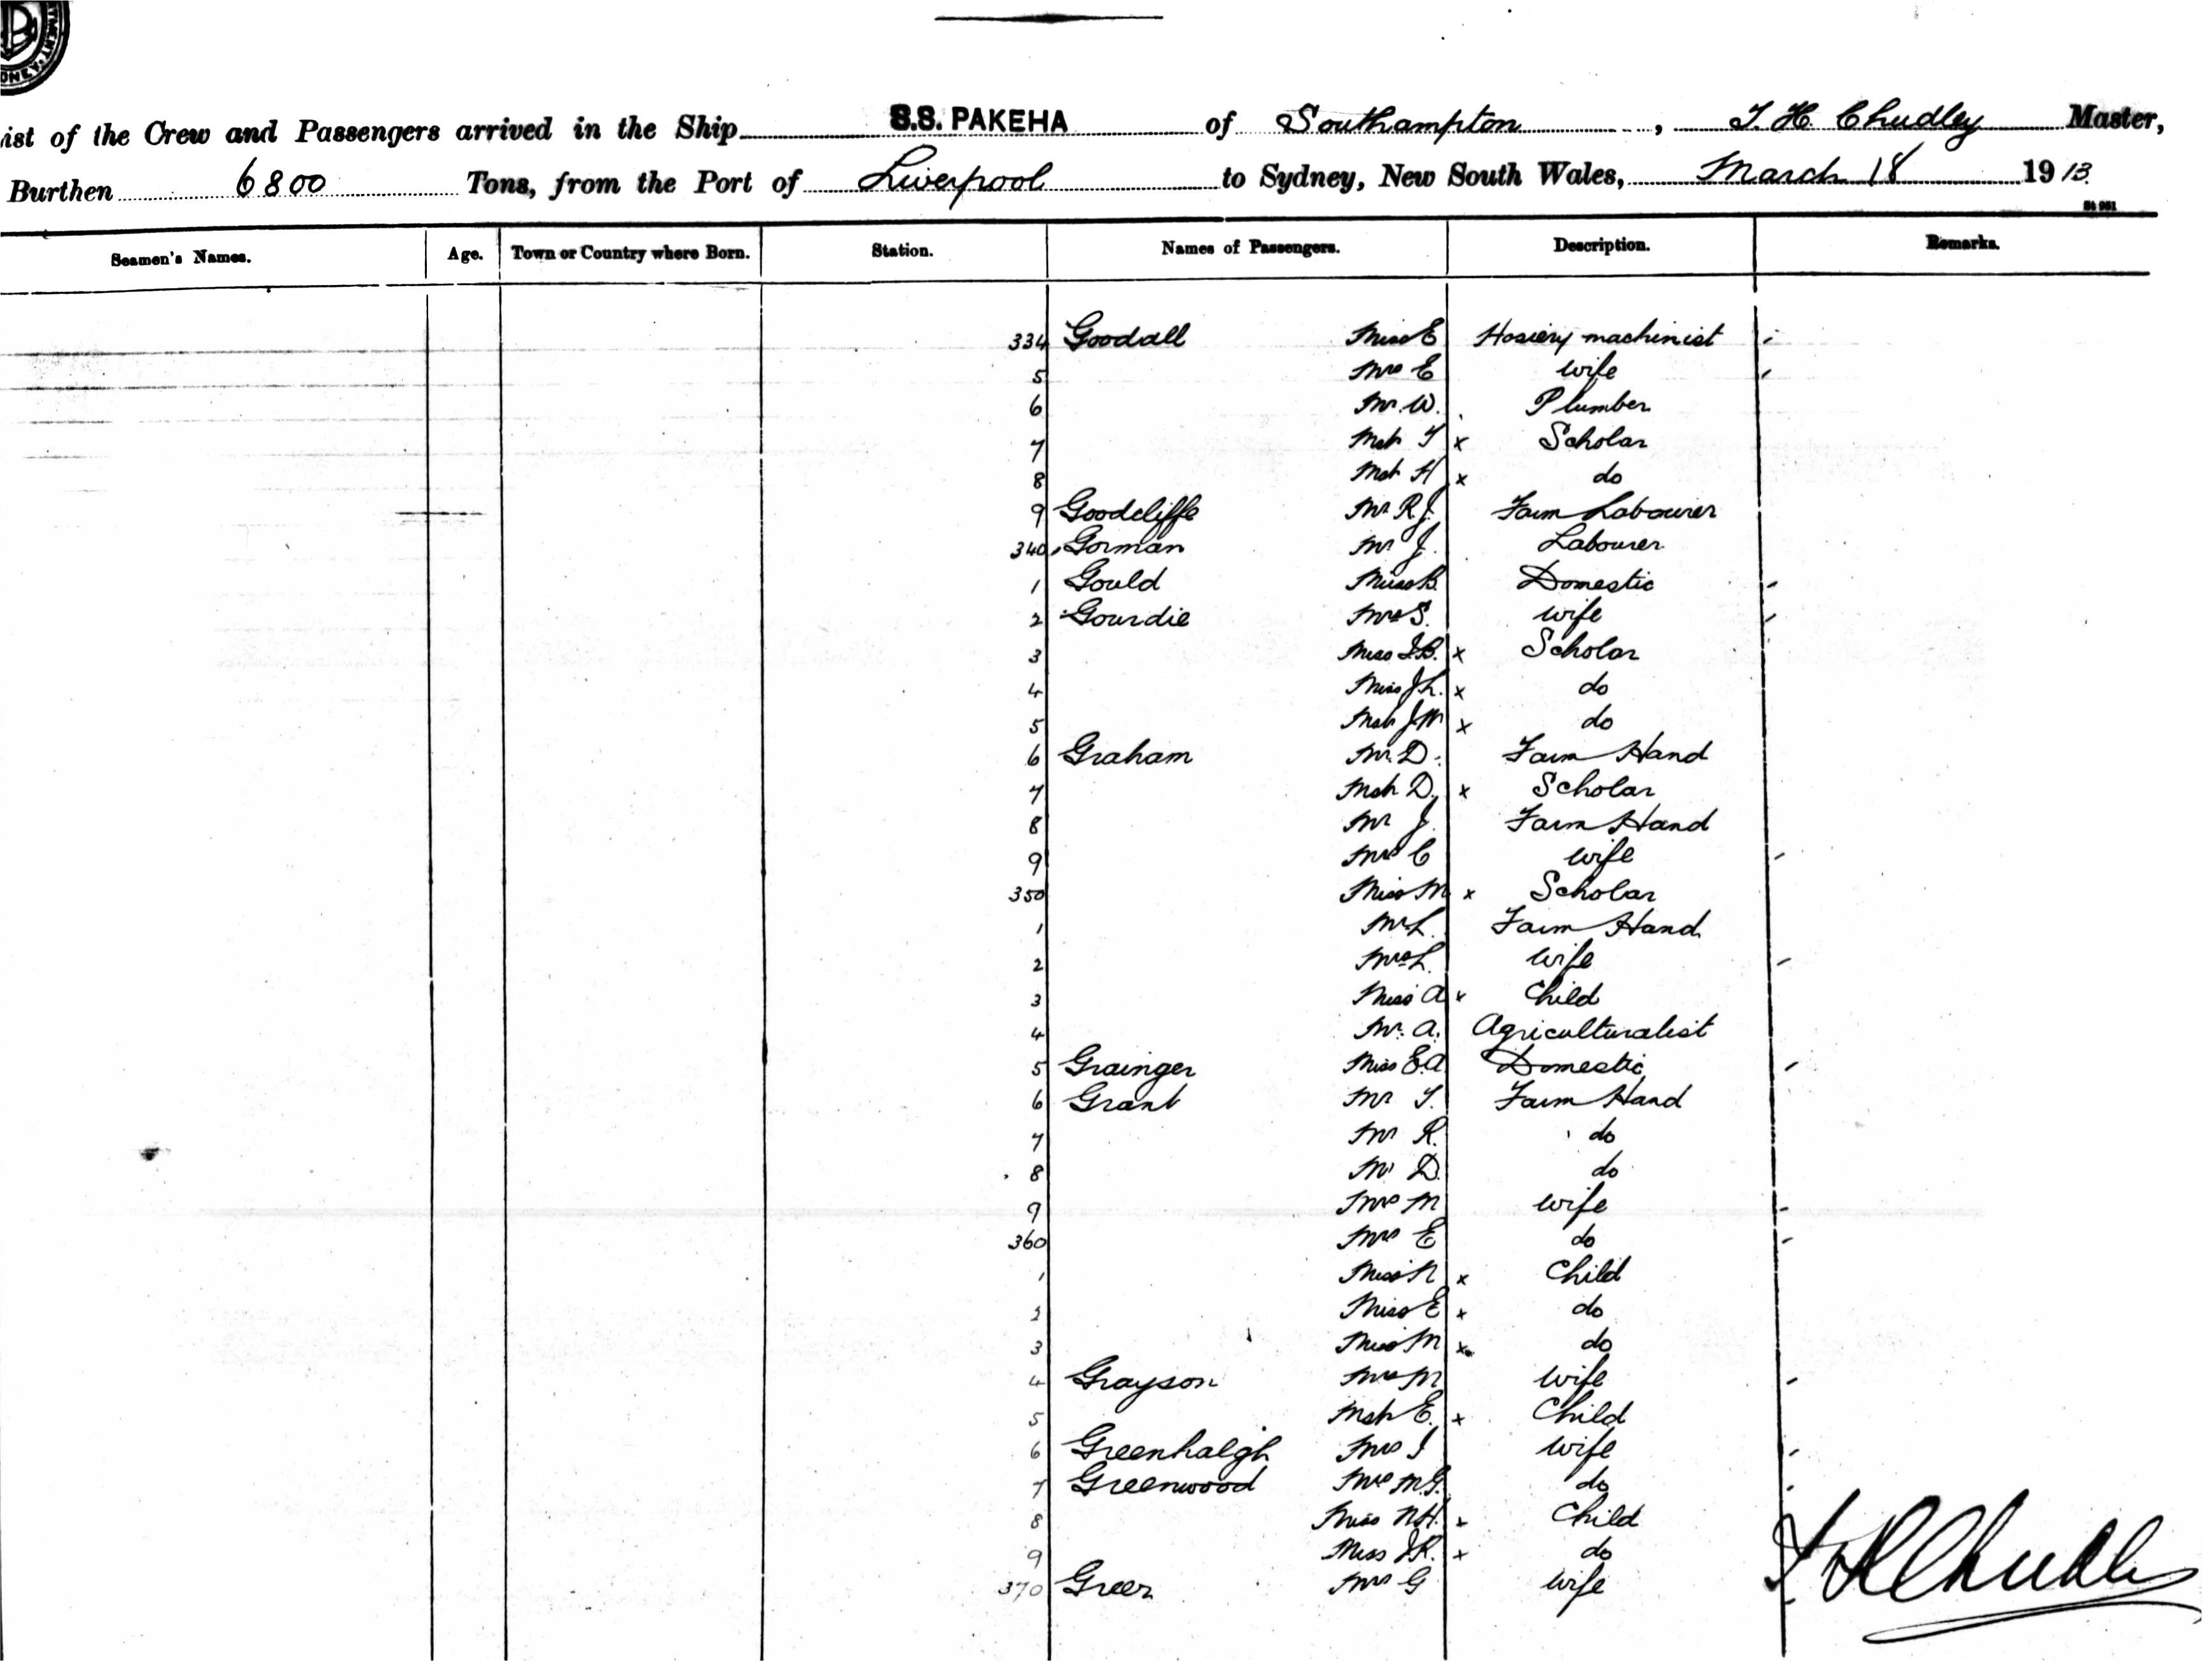 ist of the Crew and Passengers arrived in the Ship S.S. PAKEHA of Southampton, T. H. Chudley Master,
Burthen 6800 Tons, from the Port of Liverpool to Sydney, New South Wales, March 18 1913.
Seamen's Names. Age. Town or Country where Born. Station. Names of Passengers. Description. Remarks.
334 Goodall Miss E Hosiery machinist
5 Mrs E wife
6 Mr. W. Plumber
7 Mstr T x Scholar
8 Mstr H x do
9 Goodcliffe Mr R.J. Farm Labourer
340 Gorman Mr J. Labourer
1 Gould Miss B. Domestic
2 Gourdie Mrs S. wife
3 Miss I.B. x Scholar
4 Miss J.L. x do
5 Mstr J.M x do
6 Graham Mr. D. Farm Hand
7 Mstr D. x Scholar
8 Mr J. Farm Hand
9 Mrs C wife
350 Miss M x Scholar
1 Mr L. Farm Hand
2 Mrs L. wife
3 Miss A x Child
4 Mr. A. Agriculturalist
5 Grainger Miss E.A Domestic
6 Grant Mr T. Farm Hand
7 Mr R. do
8 Mr D. do
9 Mrs M wife
360 Mrs E do
1 Miss N x Child
2 Miss E x do
3 Miss M x do
4 Grayson Mrs M wife
5 Mstr E. x Child
6 Greenhalgh Mrs I wife
7 Greenwood Mrs M.G. do
8 Miss N.H. x Child
9 Miss I.R. x do
370 Greer Mrs G wife
T H Chudley